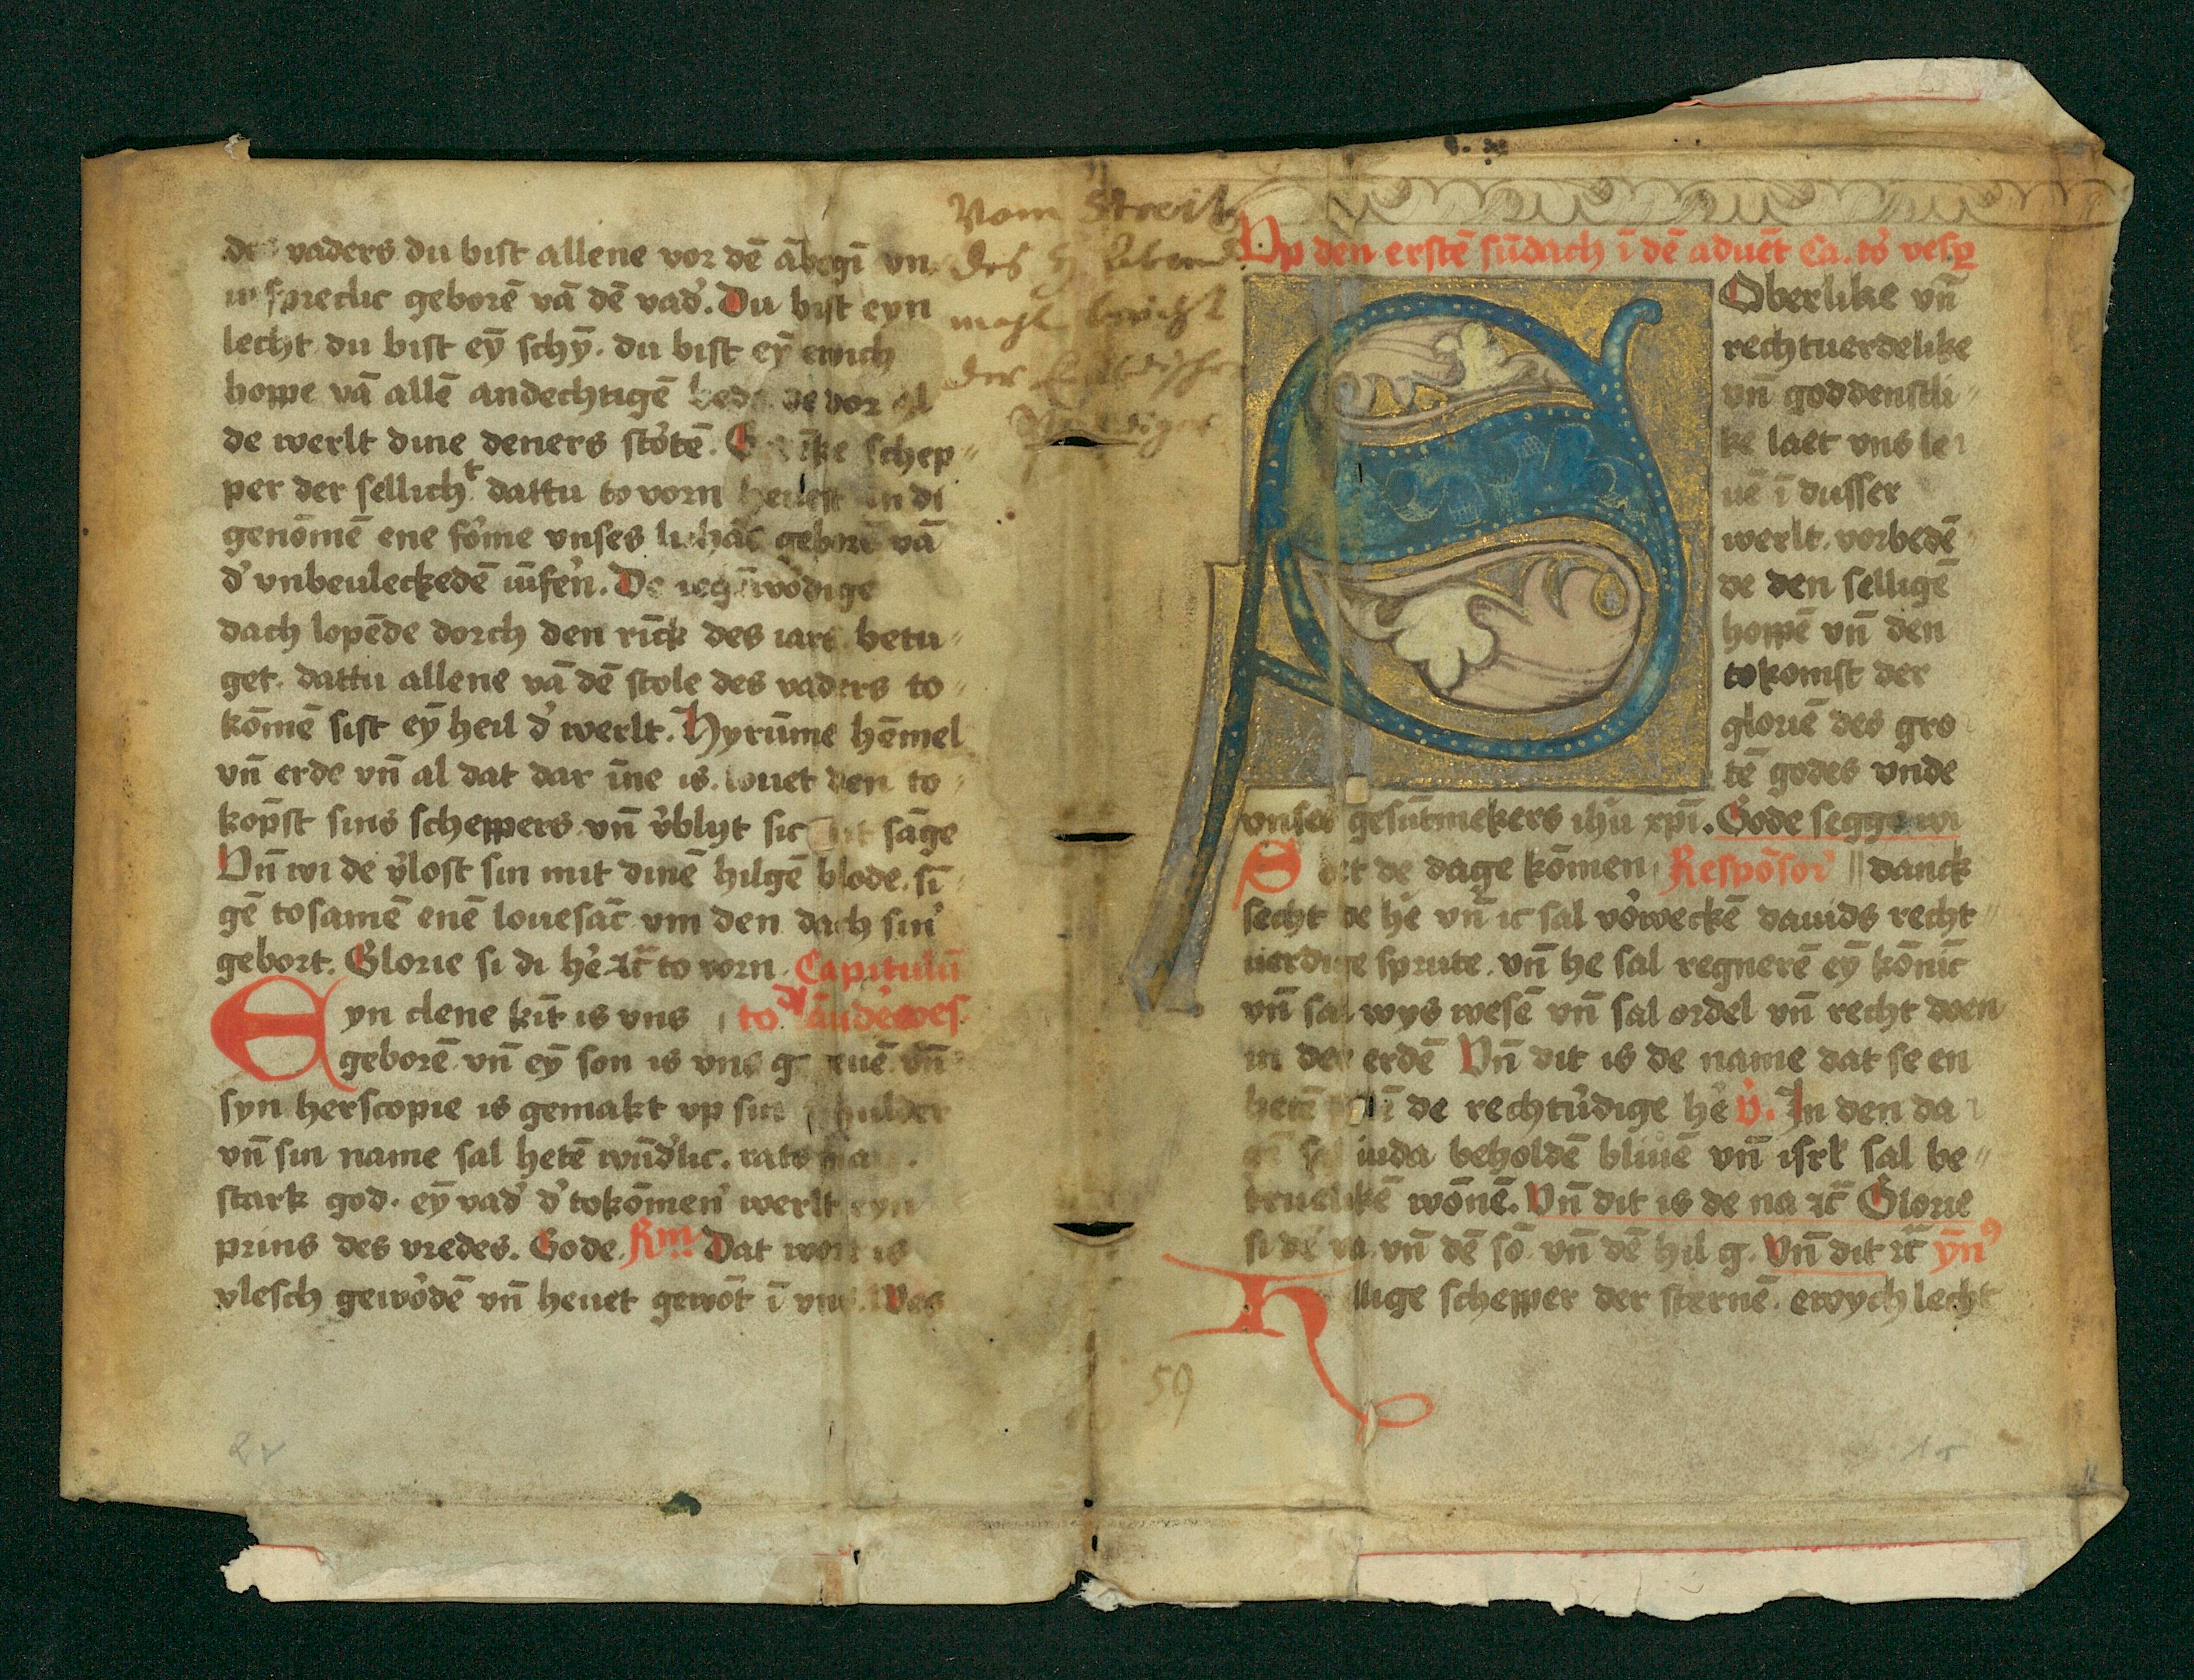 des vaders du bist allene vor dē ābegī vn
spreclic geborē vā dē vad'. Du bist eyn
lecht du bist eȳ schȳ. du bist eȳ ewich
hoppe vā allē andechtigē bede de vor al
de werlt dine deners stotē. schep〃
per der sellicht dattu to vorn heuest an di
genōmē ene fo'me vnses lichāc geborē vā
d' vnbeuleckedē iūfe'n. De iegēwo'dige
dach lopēde dorch den rīck des iars betu〃
get. dattu allene vā dē stole des vaders to〃
kōmē sist eȳ heil d' werlt. Hyrūme hēmel
vn̄ erde vn̄ al dat dar īne is. louet den to〃
kōpst sins scheppers vn̄ v'blyt sic mit sāge
Vn̄ wi de v'lost sin mit dinē hilgē blode. sī〃
gē to samē enē louesāc vm den dach sin'
gebort. Glorie si di he' ⁊c̄ to vorn. Capitulū
Eyn clene kīt is vns to
geborē vn̄ eȳ son is vns geuē vn̄
syn herscopie is gemakt vp sin schulder
vn̄ sin name sal hetē wūd'lic. rats
stark god. eȳ vad' d' tokōmen' werlt eyn
prins des vredes. Gode. Rm Dat wort is
vlesch gewo'dē vn̄ heuet gewōt ī vns. Wes
Vom Streit
des H. Abend
mahls bericht
der
Prediger
Vp den erstē sūdach ī dē aduēt Ca. to' vesp
SOberlike vn̄
rechtuerdelike
vn̄ goddenstli〃
ke laet vns le〃
uē ī dusser
werlt. vorbedē〃
de den selligē
hoppē vn̄ den
tokomst der
gloriē des gro〃
tē godes vnde
vnses gesūtmekers ihū xp̄ī. Gode segge wi
Set de dage kōmen Respōsor' ‖ danck
secht de he' vn̄ ic sal vo'weckē dauids recht〃
uerdige sprute. vn̄ he sal regnerē eȳ kōnīc
vn̄ sal wys wesē vn̄ sal ordel vn̄ recht doen
in der erdē Vn̄ dit is de name dat se en
hetē de rechtu'dige he' V. In den da〃
gē sal iuda beholdē bliuē vn̄ isrl sal be〃
truelikē wōnē. Vn̄ dit is de na ⁊c̄ Glorie
si dē va. vn̄ dē sō vn̄ dē hil g. Vn̄ dit ⁊c̄ ȳn9
Hillige schepper der sternē. ewych lecht
59